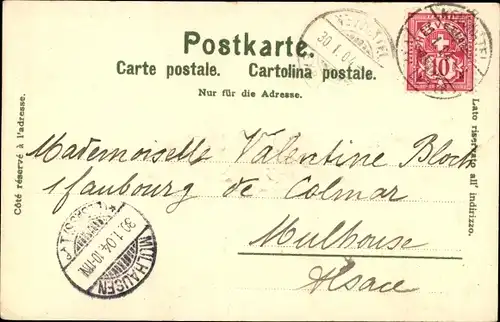 Postkarte.
Carte postale. Cartolina postale.
Nur für die Adresse.
Côté réservé à l'adresse.
Lato riservato all' indirizzo.
30.1.04
10
Mademoiselle Valentine Bloch
1 faubourg de Colmar
Mulhouse
Alsace
MÜLHAUSEN
30.1.04.10-11N